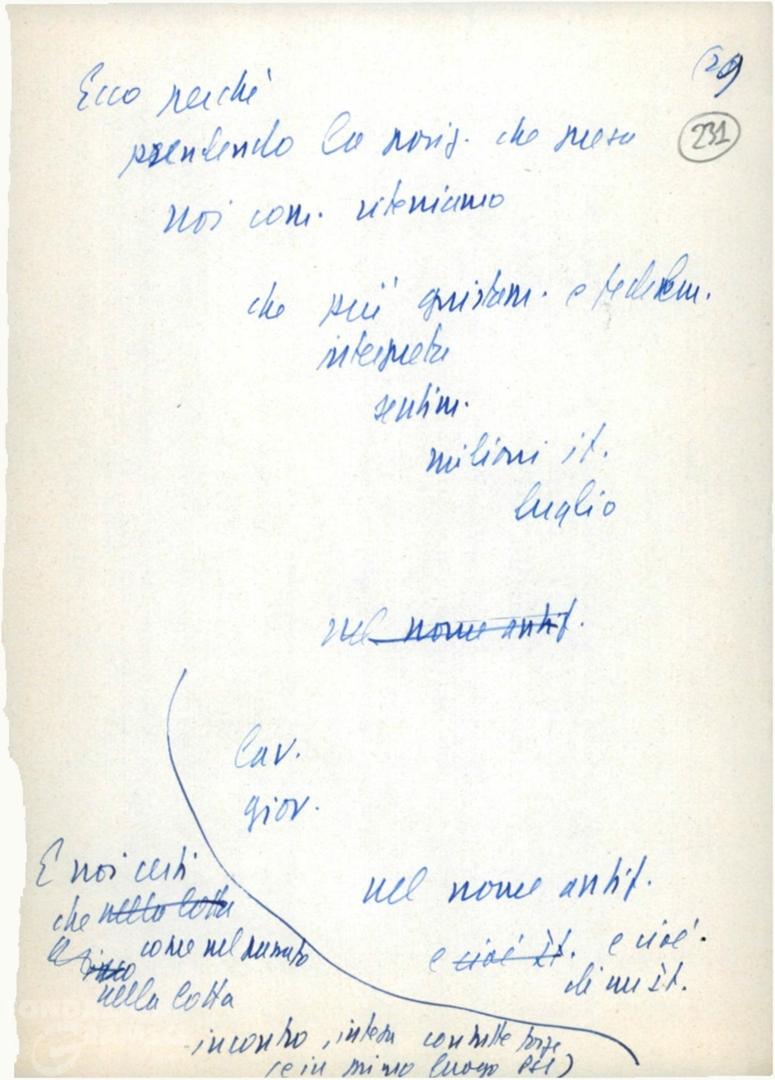 (29
231
Ecco perché
prendendo la posiz. che presa
noi com. riteniamo
che più giustam. e fedelem.
interpreta
sentim.
milioni it.
luglio
nel nome antif.
lav.
giov.
nel nome antif.
e cioè it. e cioè
di un it.
E noi certi
che nella lotta
come nel passato
nella lotta
incontro, intesa con tutte forze
(e in primo luogo PSI)